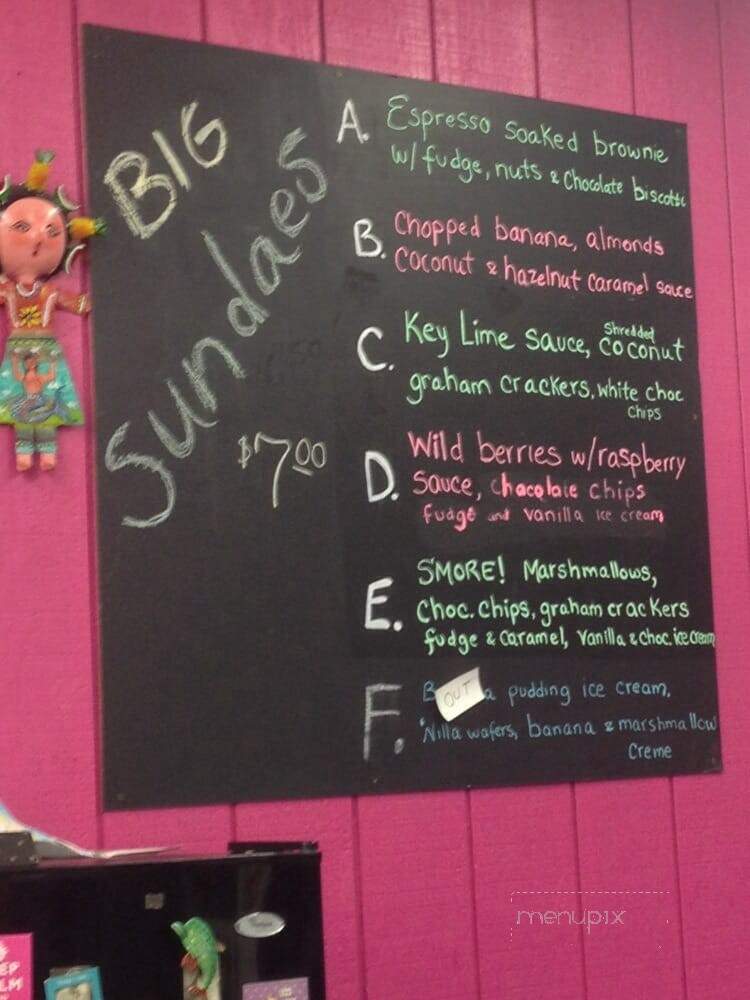 BIG
Sundaes
$7.00
A. Espresso soaked brownie
w/ fudge, nuts & Chocolate biscotti
B. Chopped banana, almonds
coconut & hazelnut caramel sauce
C. Key Lime sauce, Shredded coconut
graham crackers, white choc
chips
D. Wild berries w/raspberry
sauce, chacolate chips
fudge and vanilla ice cream
E. S'MORE! Marshmallows,
choc. chips, graham crackers
fudge & caramel, vanilla & choc. ice cream
F. B OUT a pudding ice cream,
'Nilla wafers, banana & marshmallow
Creme
menupix